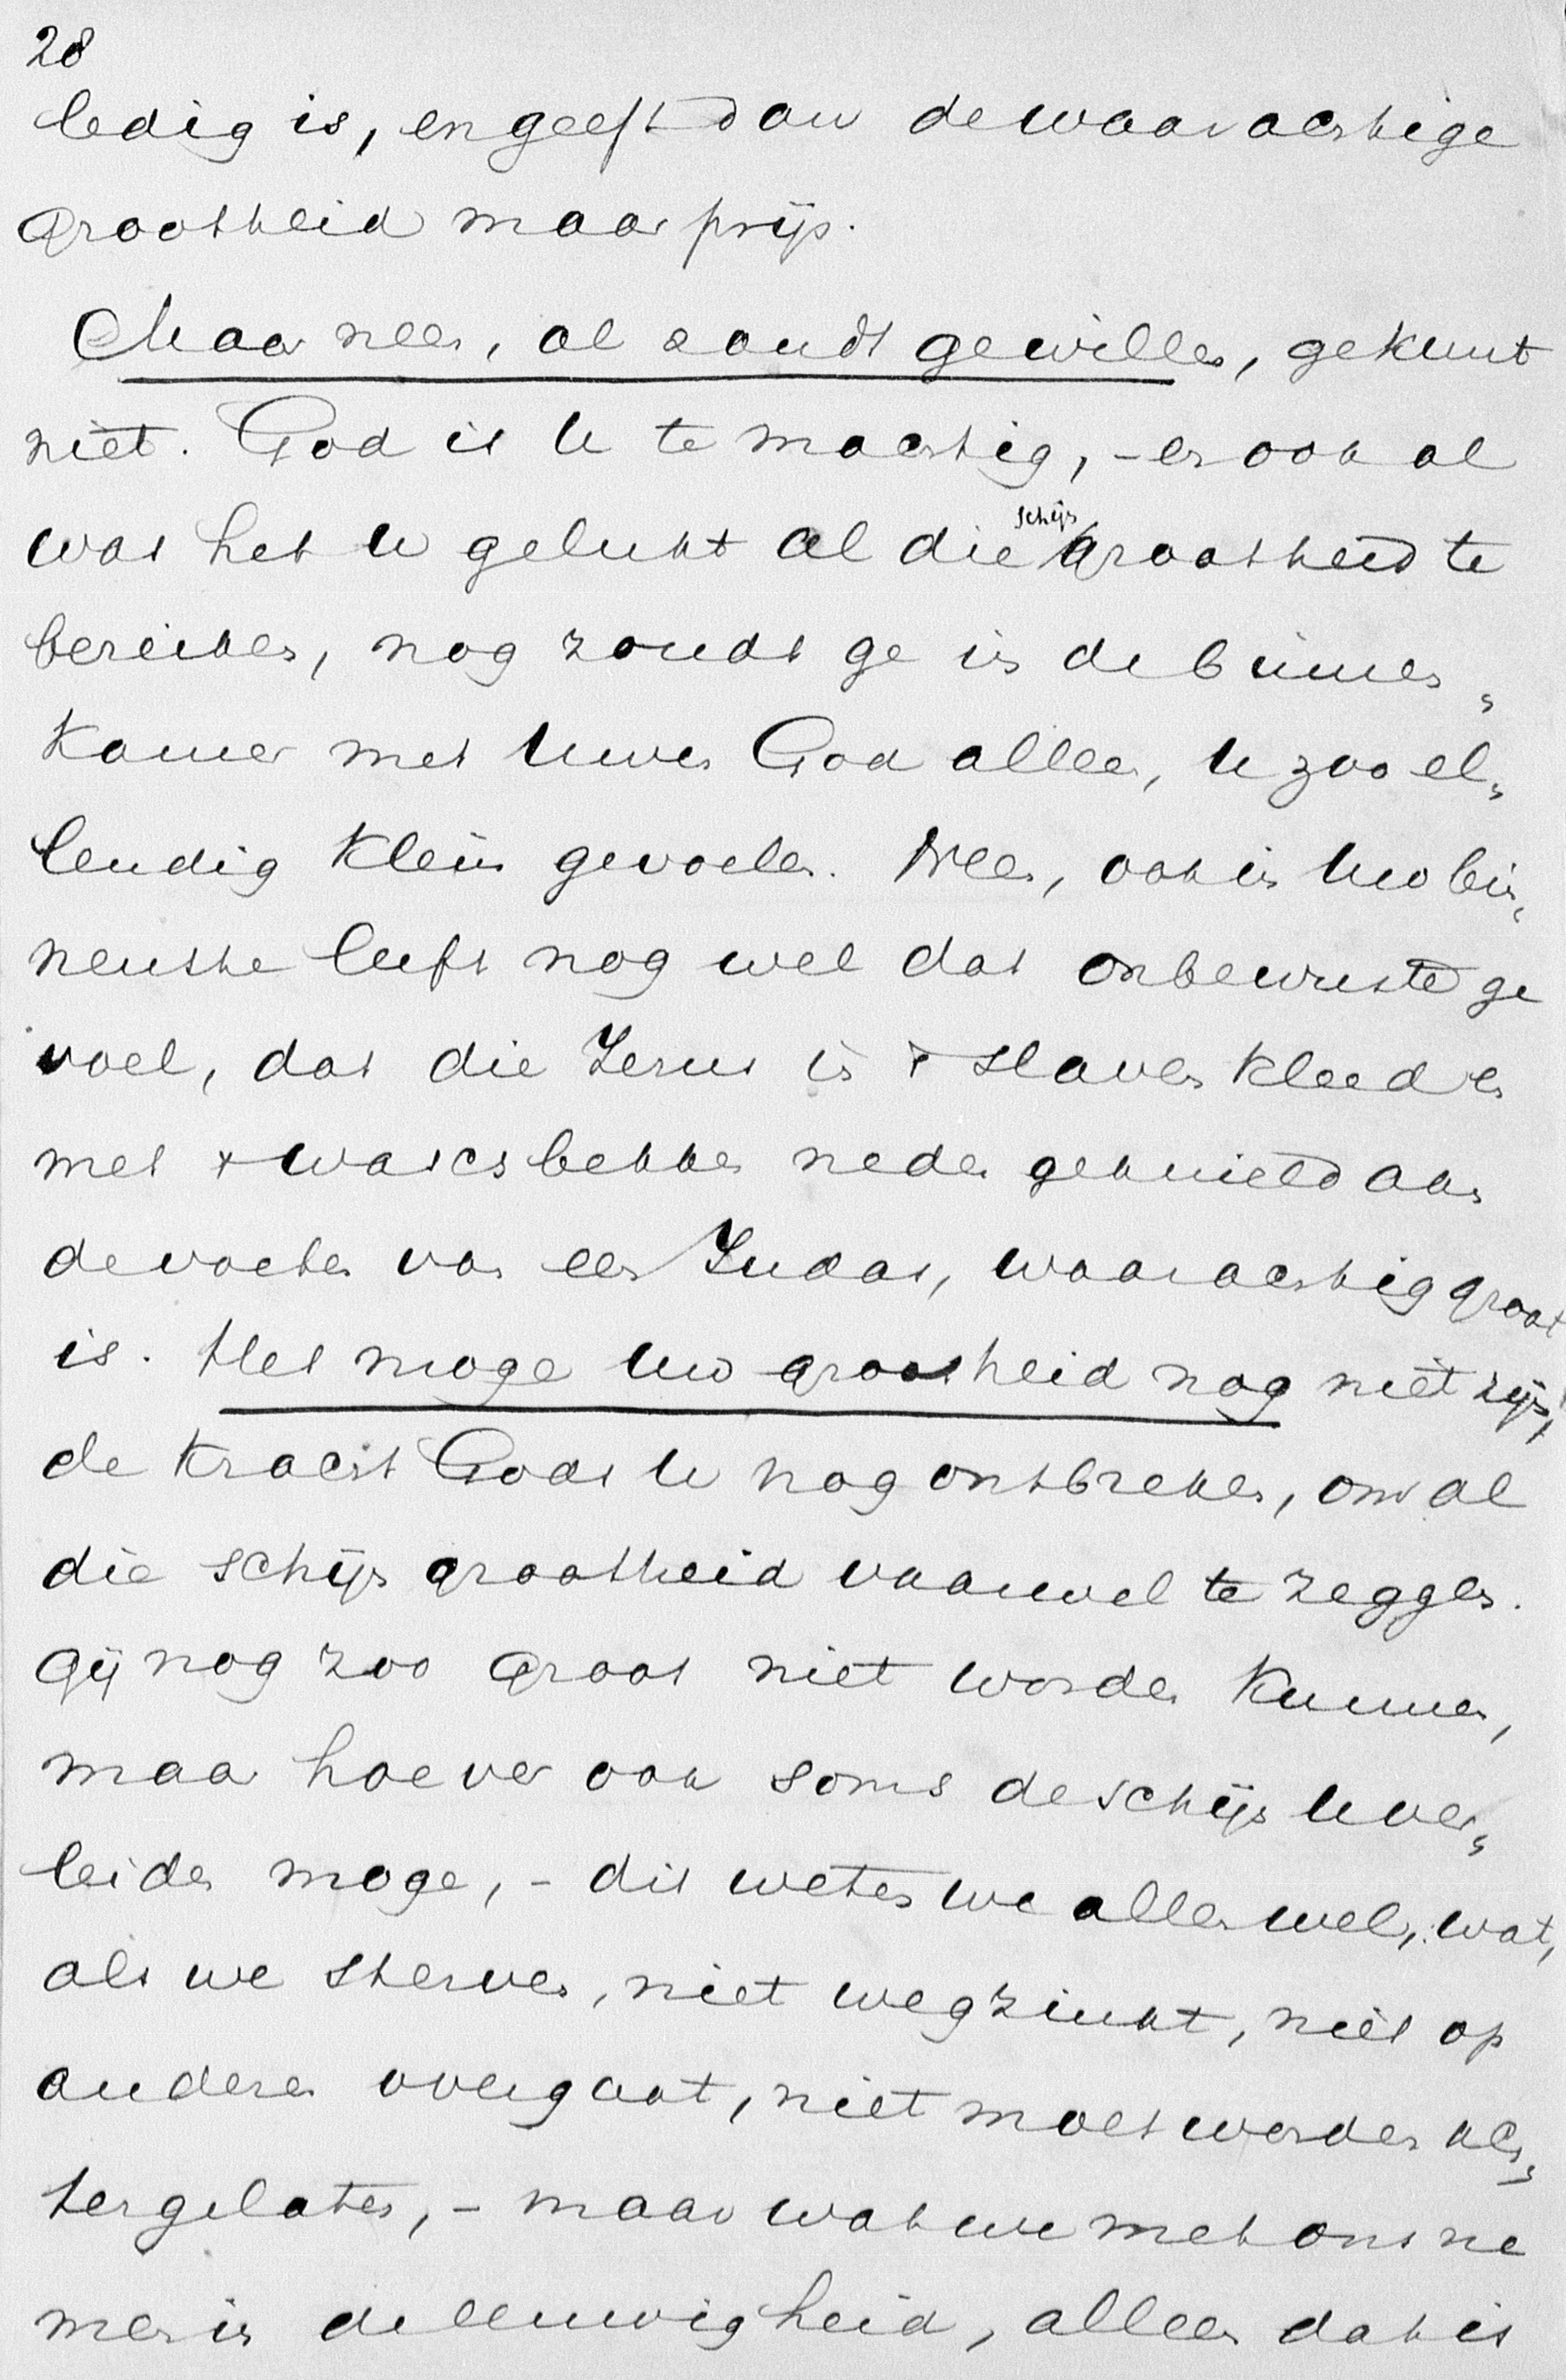 28
ledig is, en geeft dan de waarachtige
grootheid maar prijs.
Maar neen, al zoudt ge willen, ge kunt
niet. God is U te machtig, - en ook al
was het U gelukt al die schijn grootheid te
bereiken, nog zoudt ge in de binnen„
kamer met Uwen God alleen, U zoo el„
lendig klein gevoelen. Neen, ook in Uw bin„
nenste leeft nog wel dat onbewuste ge
voel, dat die Jezus in 't slavenkleed en
met 't waschbekken neder geknield aan
de voeten van een Judas, waarachtig groot
is. Het moge Uw grootheid nog niet zijn,
de kracht Gods U nog ontbreken, om al
die schijn grootheid vaarwel te zeggen.
Gij nog zoo groot niet worden kunnen,
maar hoever ook soms de schijn U ver„
leiden moge, - dit weten we allen wel, wat,
als we sterven, niet wegzinkt, niet op
anderen overgaat, niet moet worden ach„
tergelaten, - maar wat we met ons ne
men in de eeuwigheid, alleen dat is